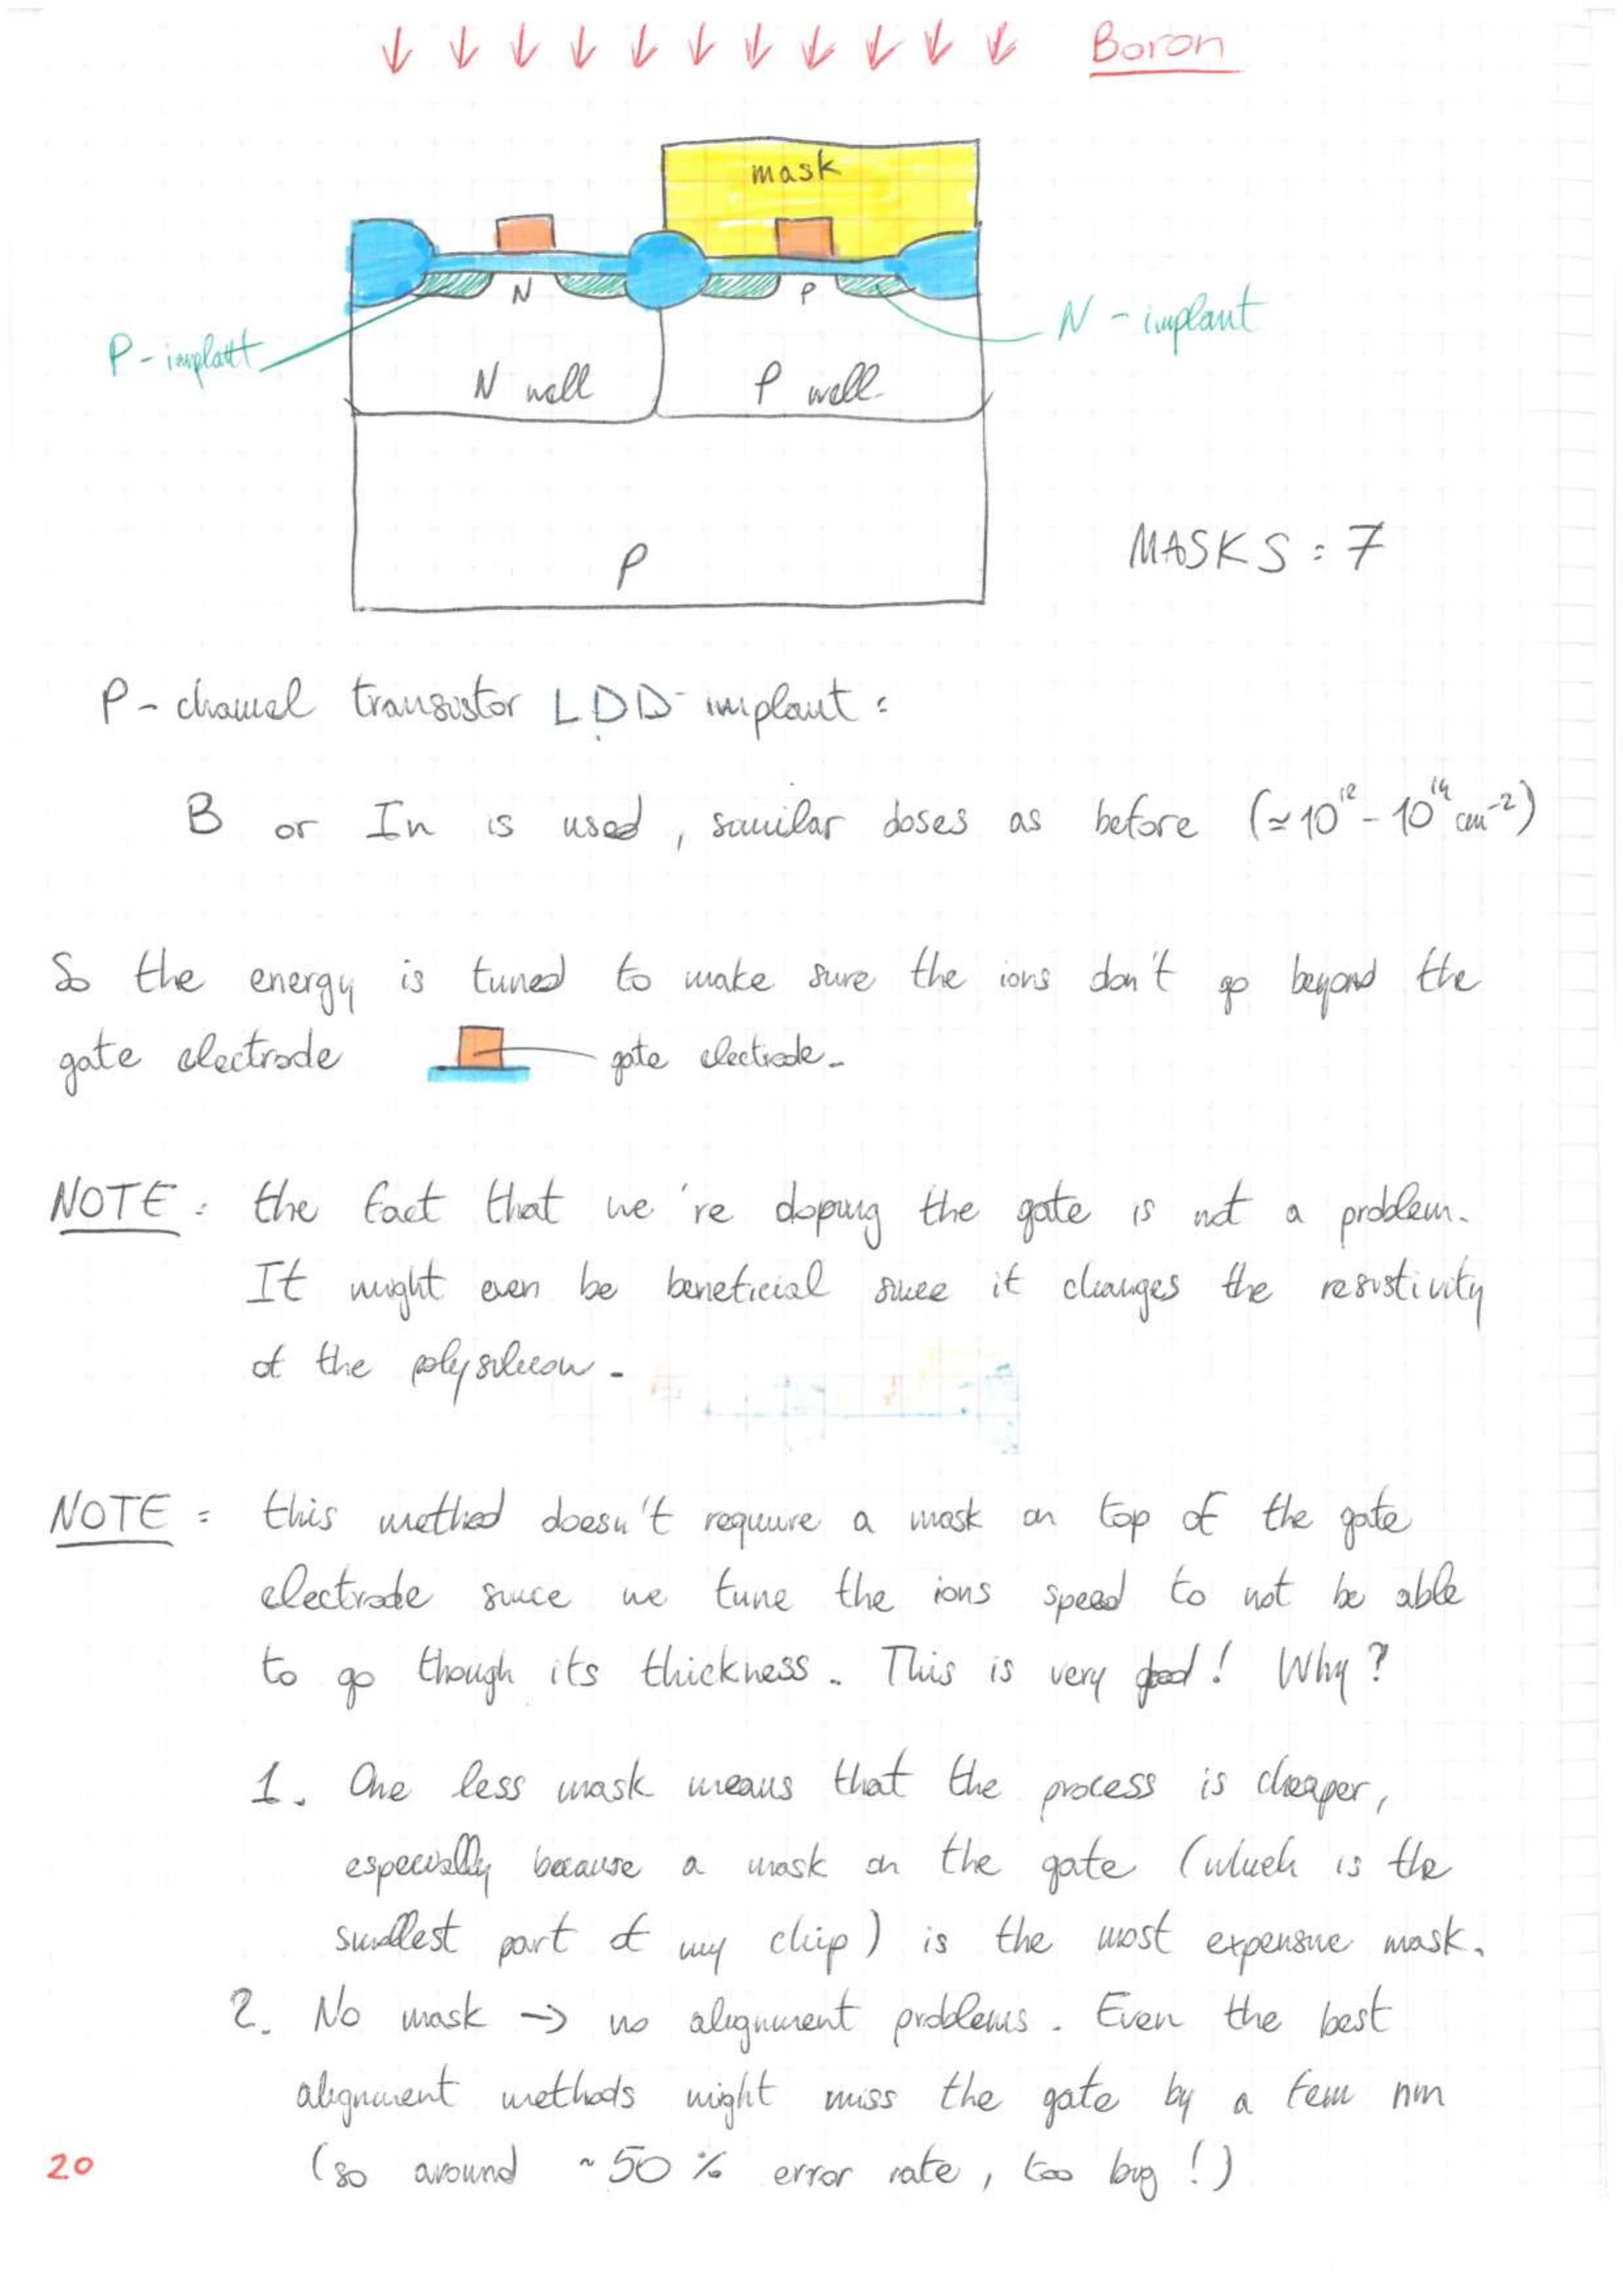 Boron
mask
N
P
P-implant
N-implant
N well
P well
P
MASKS: 7
P-channel transistor LDD implant:
B or In is used, similar doses as before (≃10¹² - 10¹⁴ cm⁻²)
So the energy is tuned to make sure the ions don't go beyond the
gate electrode
gate electrode.
NOTE: the fact that we're doping the gate is not a problem.
It might even be beneficial since it changes the resistivity
of the polysilicon.
NOTE: this method doesn't require a mask on top of the gate
electrode since we tune the ions speed to not be able
to go though its thickness. This is very good! Why?
1. One less mask means that the process is cheaper,
especially because a mask on the gate (which is the
smallest part of my chip) is the most expensive mask.
2. No mask → no alignment problems. Even the best
alignment methods might miss the gate by a few nm
(so around ~50% error rate, too big!)
20